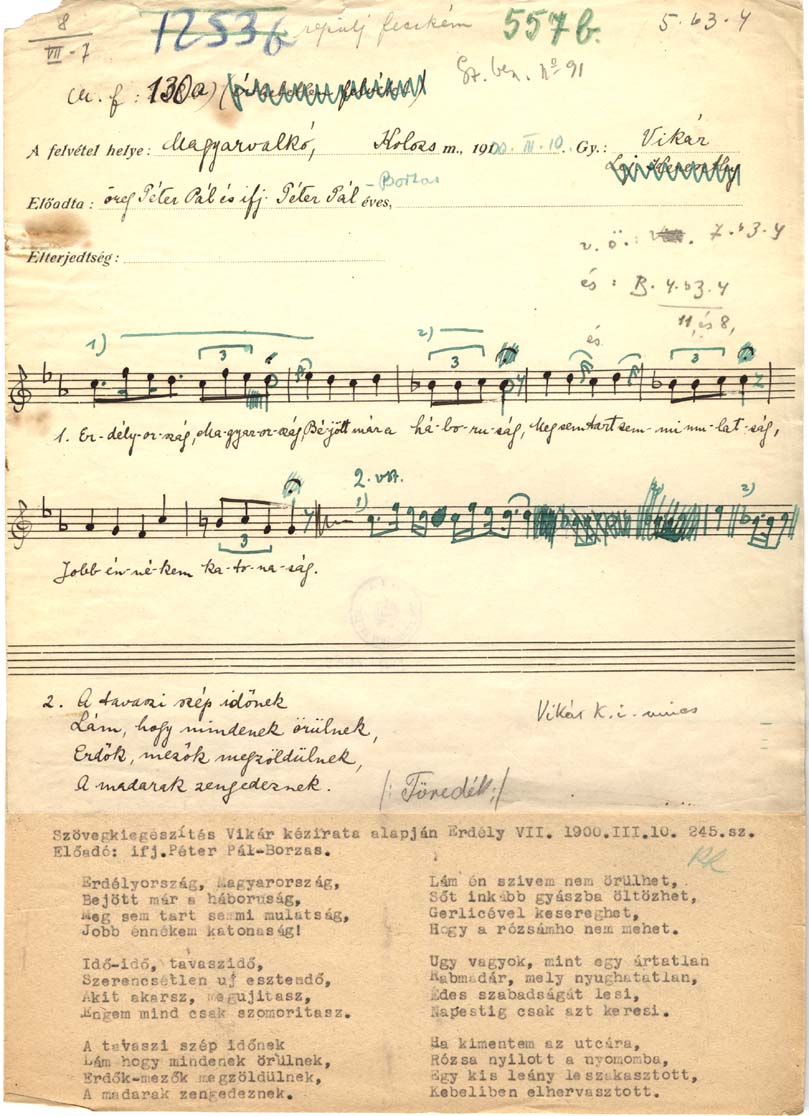 8
VII - 7
12536
repülj fecském
557 b.
5.b3.4
M. f : 130a)
Sz. ben. No 91
A felvétel helye : Magyarvalkó, Kolozs m., 1900. III. 10. Gy.: Vikár
Előadta : öreg Péter Pál és ifj. Péter Pál - Borzas éves,
Elterjedtség :
v. ö. : 7.b3.4
és : B. 4.b3.4
11, és 8,
és
1) 2)
3 3 3
1. Er-dély-or-szág, Ma-gyar-or-szág, Be-jött már a há-bo-ru-ság, Meg sem tart sem-mi mu-lat-ság,
2. vsz.
1) 2)
3
Jobb én-né-kem ka-to-na-ság.
2. A tavaszi szép időnek
Lám, hogy mindenek örülnek,
Erdők, mezők megzöldülnek,
A madarak zengedeznek.
Vikár k. i. nincs
/: Töredék :/
Szövegkiegészítés Vikár kézirata alapján Erdély VII. 1900.III.10. 245.sz.
Előadó: ifj.Péter Pál-Borzas.
Erdélyország, Magyarország,
Bejött már a háboruság,
Meg sem tart semmi mulatság,
Jobb énnékem katonaság!
Idő-idő, tavaszidő,
Szerencsétlen uj esztendő,
Akit akarsz, megujitasz,
Engem mind csak szomoritasz.
A tavaszi szép időnek
Lám hogy mindenek örülnek,
Erdők-mezők megzöldülnek,
A madarak zengedeznek.
Lám én szivem nem örülhet,
Sőt inkább gyászba öltözhet,
Gerlicével kesereghet,
Hogy a rózsámho nem mehet.
Ugy vagyok, mint egy ártatlan
Rabmadár, mely nyughatatlan,
Édes szabadságát lesi,
Napestig csak azt keresi.
Ha kimentem az utcára,
Rózsa nyilott a nyomomba,
Egy kis leány leszakasztott,
Kebeliben elhervasztott.